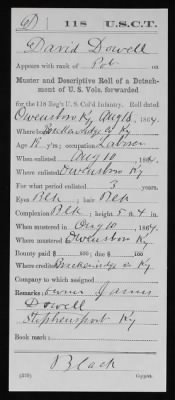 D | 118 | U.S.C.T.
David Dowell
Appears with rank of Pvt. on
Muster and Descriptive Roll of a Detach-
ment of U. S. Vols. forwarded
for the 118 Reg't U. S. Col'd Infantry. Roll dated
Owensboro Ky Aug 13, 1864.
Where born Breckenridge Co Ky
Age y'rs; occupation Laborer
When enlisted Aug 10, 1864.
Where enlisted Owensboro Ky
For what period enlisted 3 years.
Eyes Blk; hair Blk
Complexion Blk; height 5 ft. 4 in.
When mustered in Aug 10, 1864.
Where mustered in Owensboro Ky
Bounty paid $ 100; due $ 100
Where credited Breckenridge Co Ky
Company to which assigned
Remarks: Owner James
Dowell
Stephensport Ky
Book mark:
Black
Copyist.